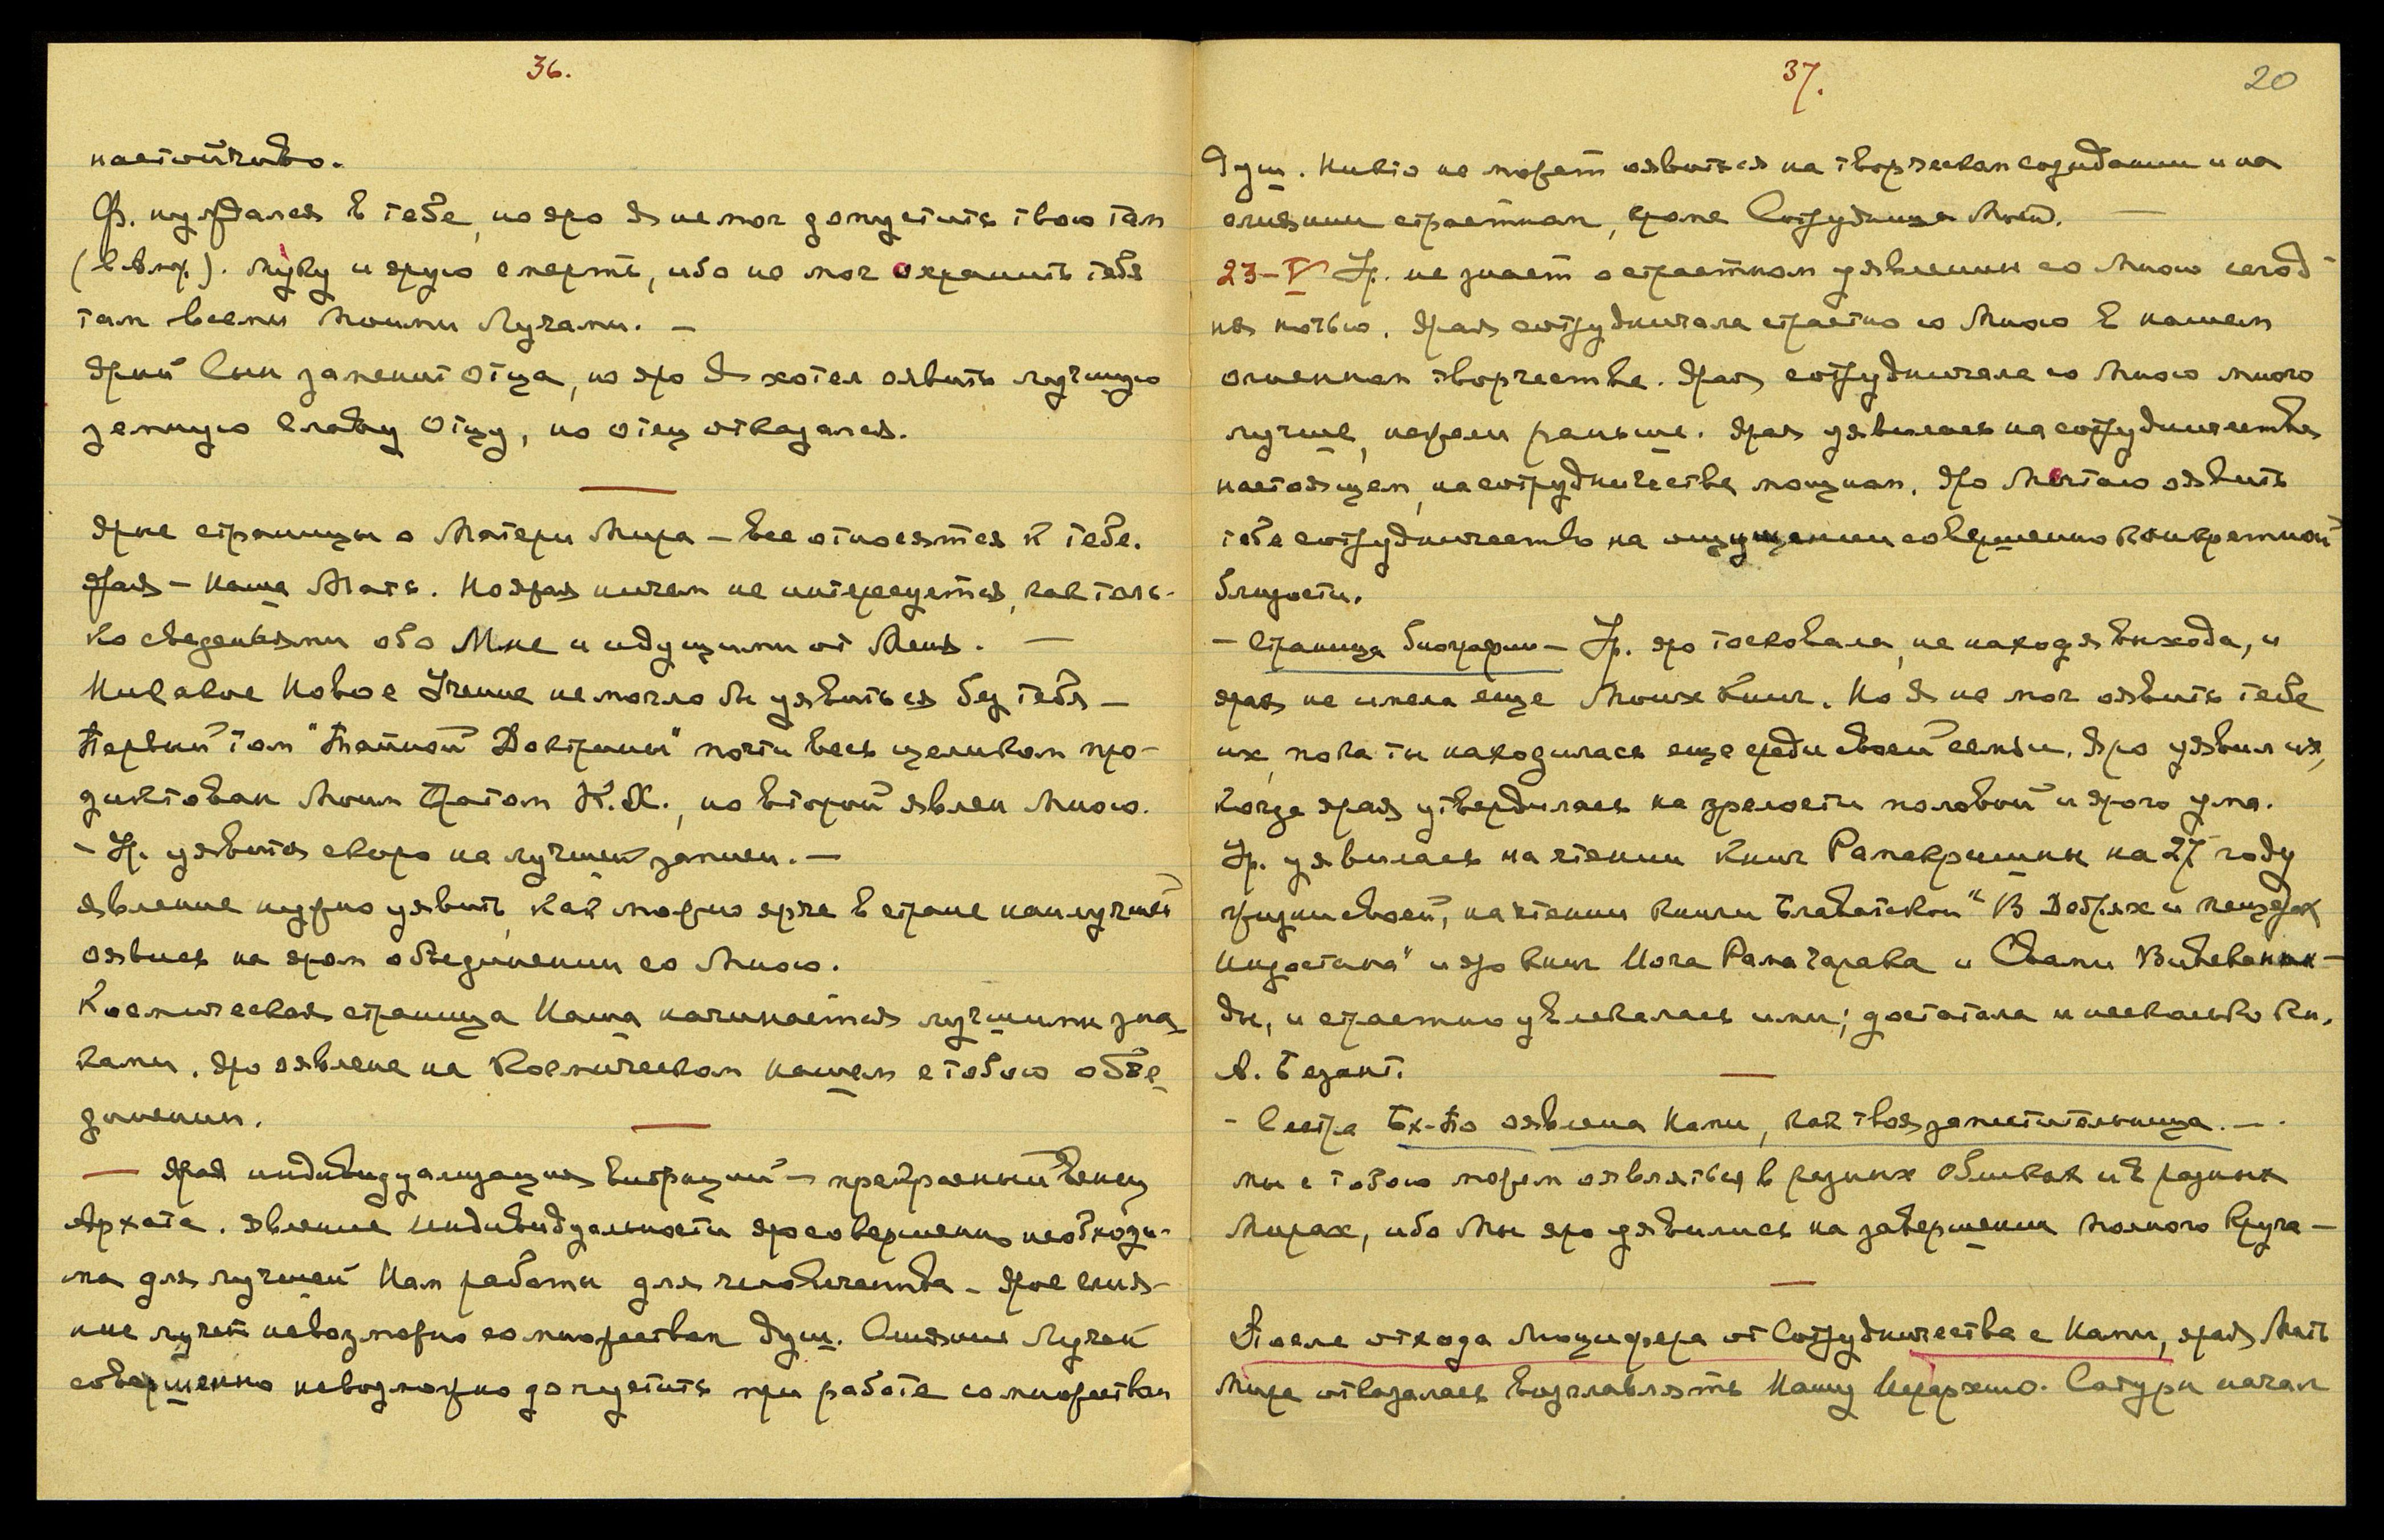 36.
настойчиво.
Ф. нуждался в тебе, но яро Я не мог допустить твою там
(в Ам.). муку и ярую смерть, ибо не мог охранить тебя
там всеми Моими Лучами. —
Ярый Сын заменит отца, но яро Я хотел оявить лучшую
земную Славу Отцу, но отец отказался.
Ярые страницы о Матери Мира — все относятся к тебе.
Ярая — Наша Мать. Но ярая ничем не интересуется, как толь-
ко сведеньями обо Мне и идущими от Меня. —
Никакое Новое Учение не могло бы уявиться без тебя —
Первый том "Тайной Доктрины" почти весь целиком про-
диктован Моим Братом К.Х., но второй явлен Мною.
– Ур. уявится скоро на лучшей записи. —
явление нужно уявить, как можно ярче в стране наилучшей
оявись на яром объединении со Мною.
Космическая страница Наша начинается лучшими зна
ками. Яро оявлена на Космическом нашем с тобою объе
динении.
— Ярая индивидуализация вибраций — прекрасный Венец
Архата. Явление индивидуальности яро совершенно необходи-
ма для лучшей Нам работы для человечества – Ярое слия-
ние лучей невозможно со множеством душ. Слияние Лучей
совершенно невозможно допустить при работе со множеством
37.
20
душ. Никто не может оявиться на творческом созидании и на
слиянии страстном, кроме Сотрудницы Моей. —
23–V Ур. не знает о страстном уявлении со Мною сегод-
ня ночью. Ярая сотрудничала страстно со Мною в нашем
огненном творчестве. Ярая сотрудничала со Мною много
лучше, нежели раньше. Ярая уявилась на сотрудничестве
настоящем, на сотрудничестве мощном. Яро Мечтаю оявить
тебе сотрудничество на ощущении совершенно конкретной
близости.
– Страница биографии – Ур. яро тосковала, не находя выхода, и
ярая не имела еще Моих Книг. Но Я не мог оявить тебе
их, пока ты находилась еще среди своей семьи. Яро уявил их,
когда ярая утвердилась на зрелости половой и ярого ума.
Ур. уявилась на чтении книг Рамакришны на 27 году
жизни своей, на чтении книги Блаватской "В Дебрях и пещерах
Индостана" и яро книг Йога Рамачарака и Свами Вивеканан-
ды, и страстно увлекалась ими; достала и несколько кн.
А. Безант.
– Сестра Ех-То оявлена Нами, как твоя заместительница. —.
мы с тобою можем оявляться в разных Обликах и в разных
Мирах, ибо Мы яро уявились на завершении полного Круга —
После отхода Люцифера от Сотрудничества с Нами, ярая Мать
Мира отказалась возглавлять Нашу Иерархию. Сатурн начал